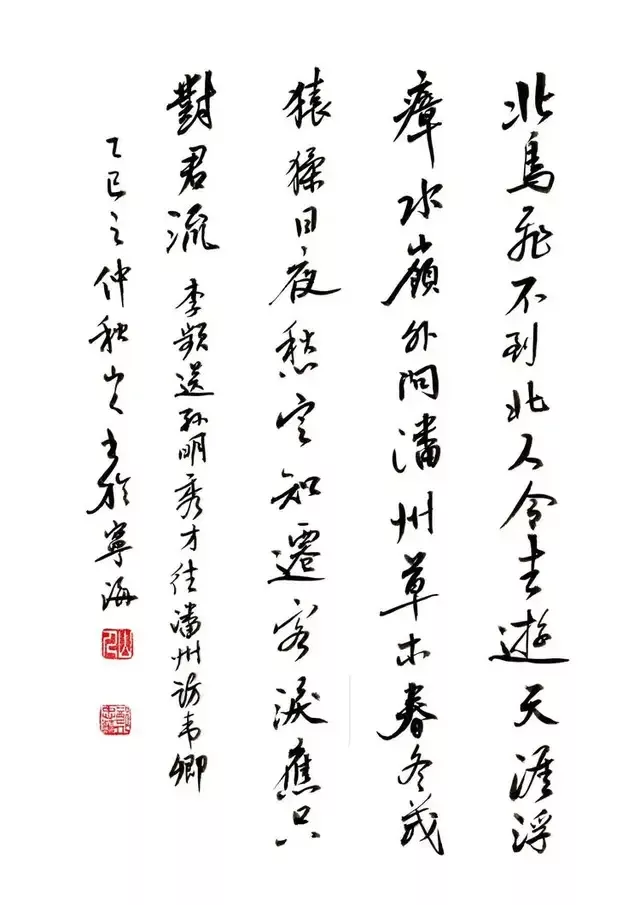 北鳥飛不到北人今去遊天涯浮
瘴水嶺外問潘州草木春冬茂
猿猱日夜愁定知遷客淚應只
對君流 李頻送孫明秀才往潘州訪韋卿
乙巳之仲秋山人書於寧海
山人